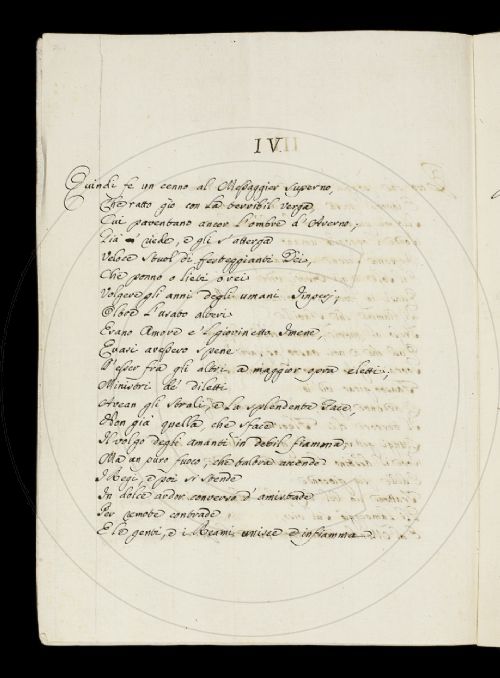 IV
Quindi fe un cenno al Messaggier Superno,
Che ratto gio con la terribil verga,
Cui paventano ancor l'ombre d'Averno;
Già riede, e gli s'atterga
Veloce Stuol di festeggianti Dei,
Che ponno o lieti o rei
Volgere gli anni degli umani Imperj;
Ebbe l'usato alberi
Erano Amore e 'l giovinetto Imene,
Quasi avessero Spene
D'esser fra gli altri a maggior opra eletti;
Ministri de' diletti
Avean gli Strali, e La splendente Face,
Non già quella, che sface
Il volgo degli amanti in debil fiamma,
Ma un puro fuoco, che talora accende
I Regi, e poi si stende
In dolce ardor converso d'amistade
Per remote contrade
E le genti, e i Reami unisce e infiamma.